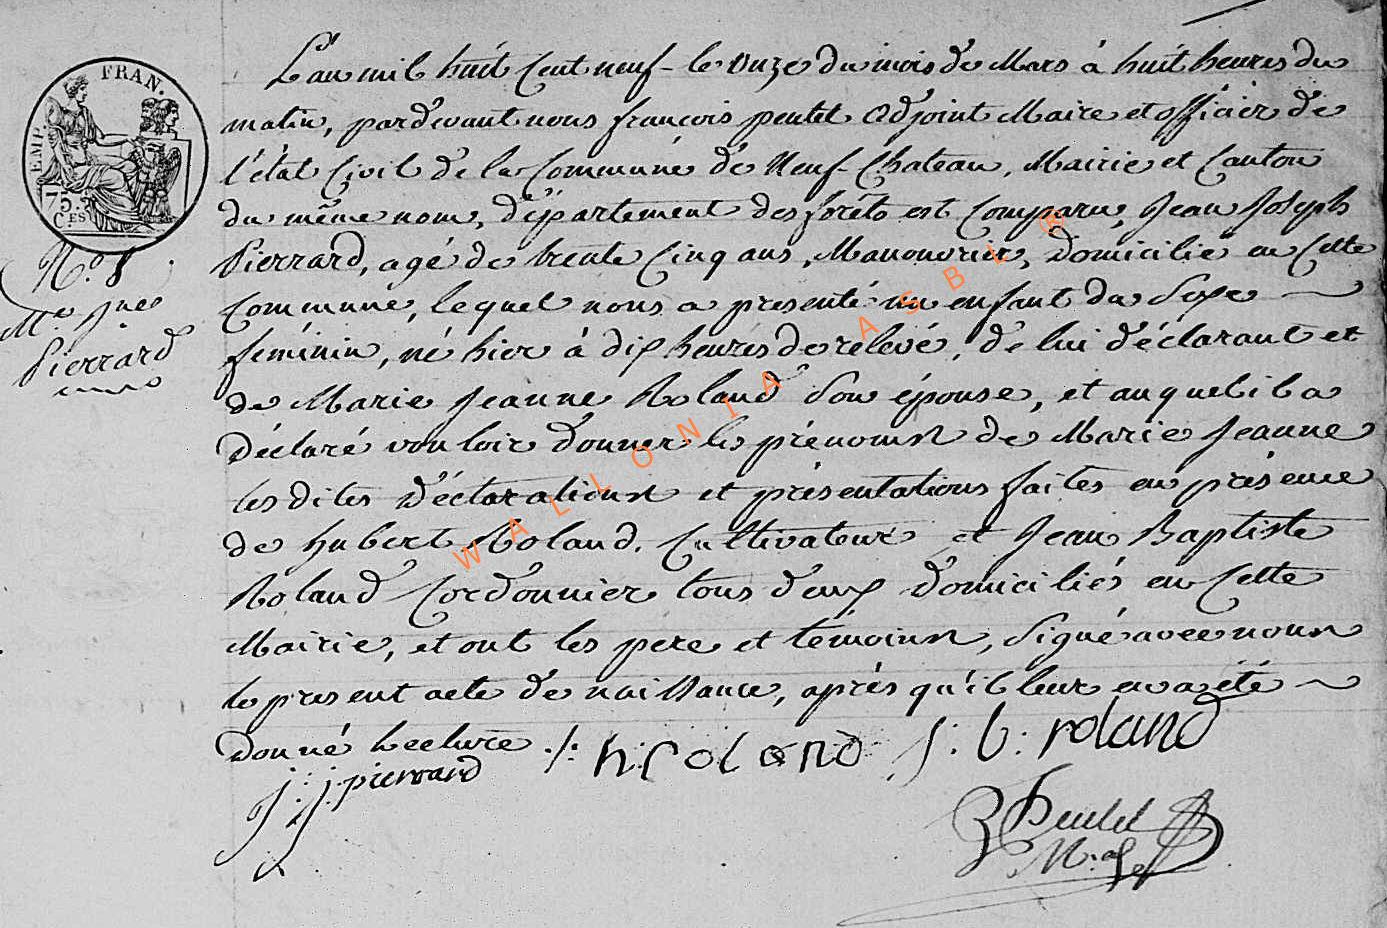 L'an mil huit Cent neuf le Onze du mois de Mars à huit heures du
matin, pardevant nous françois pentet Adjoint Maire et officier de
l'état Civil de la Commune de Neuf-Chateau, Mairie et Canton
du même nom, département des forêts est Comparu, Jean Joseph
Pierrard, agé de trente Cinq ans, Manouvrier, domicilié en Cette
Commune, lequel nous a presenté un enfant du Sexe
féminin, né hier à dix heures de relevé, de lui déclarant et
de Marie Jeanne Roland Son épouse, et auquel il a
déclaré vouloir donner les prénoms de Marie Jeanne
les dites déclarations et présentations faites en présence
de hubert Roland, Cultivateur et Jean Baptiste
Roland Cordonnier tous deux domiciliés en Cette
Mairie, et ont les pere et témoins, Signé avec nous
le present acte de naissance, après qu'il leur en a été
donné lecture ./.
h: roland j: b: roland
j: j: pierrard
EMP. FRAN.
75. CES
No. 8
Mie Jnee
Pierrard
WALLONIA ASBL ®